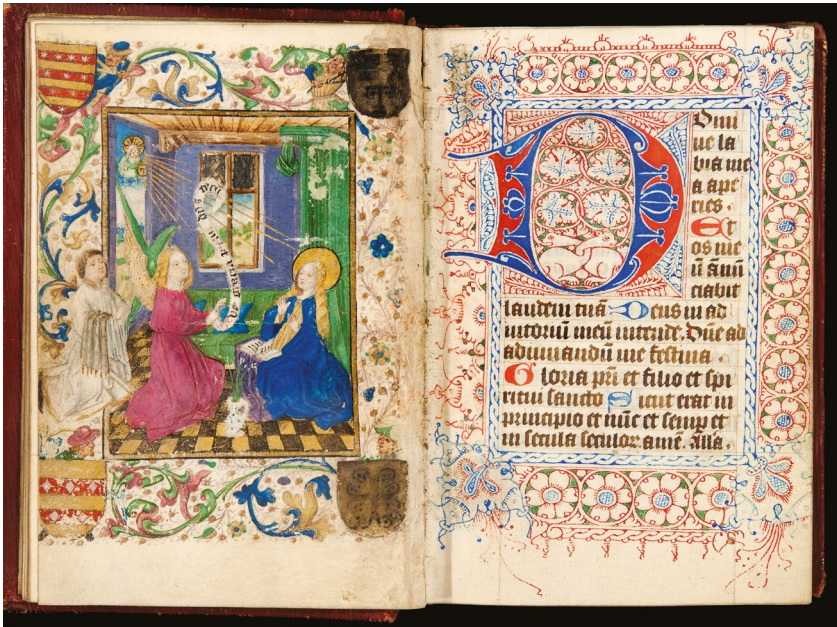 16
Domi
ne la
bia me
a ape
ries .
Et
os me
ū ānū
ciabit
laudem tuā Deus in ad
iutoriū meū intende . Dn̄e ad
adiuuandū me festina .
Gloria pr̄i et filio et spi
ritui sancto Sicut erat in
principio et nūc et semp et
in secula seculor amē . Alla .